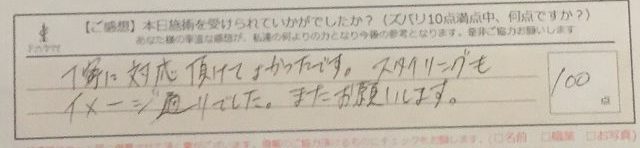 【ご感想】本日施術を受けられていかがでしたか?(ズバリ10点満点中、何点ですか?)
あなた様の率直な感想が、私達の何よりの力となり今後の参考となります。是非ご協力お願いします
丁寧に対応頂けてよかったです。スタイリングも
イメージ通りでした。またお願いします。
100
点
チェックをお願いします。(□名前 □職業 □お写真)